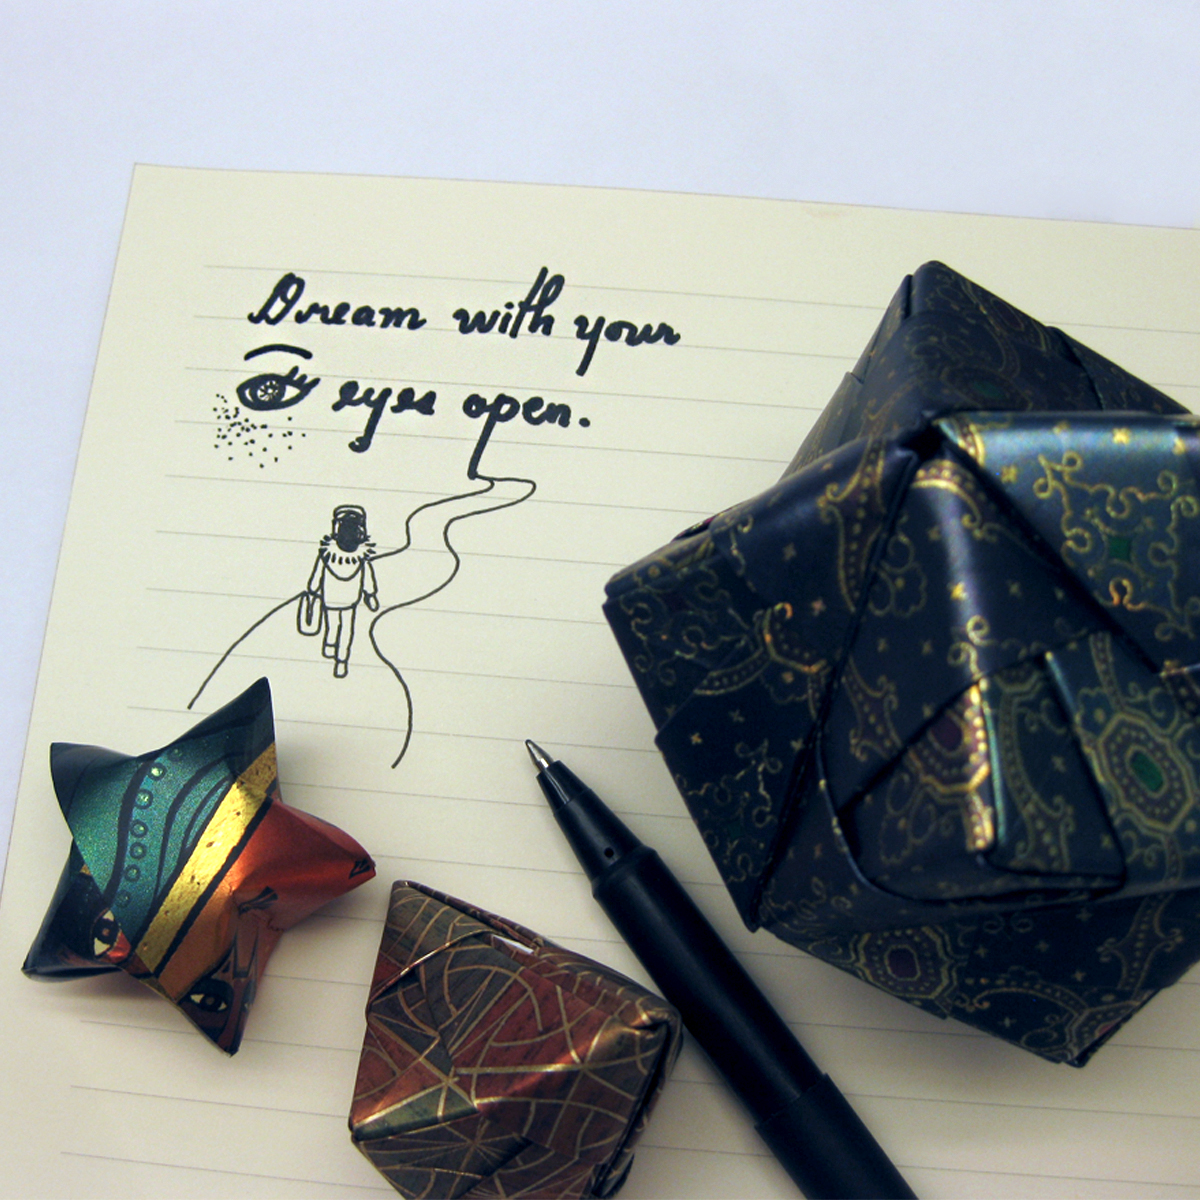 Dream with your
eyes open.